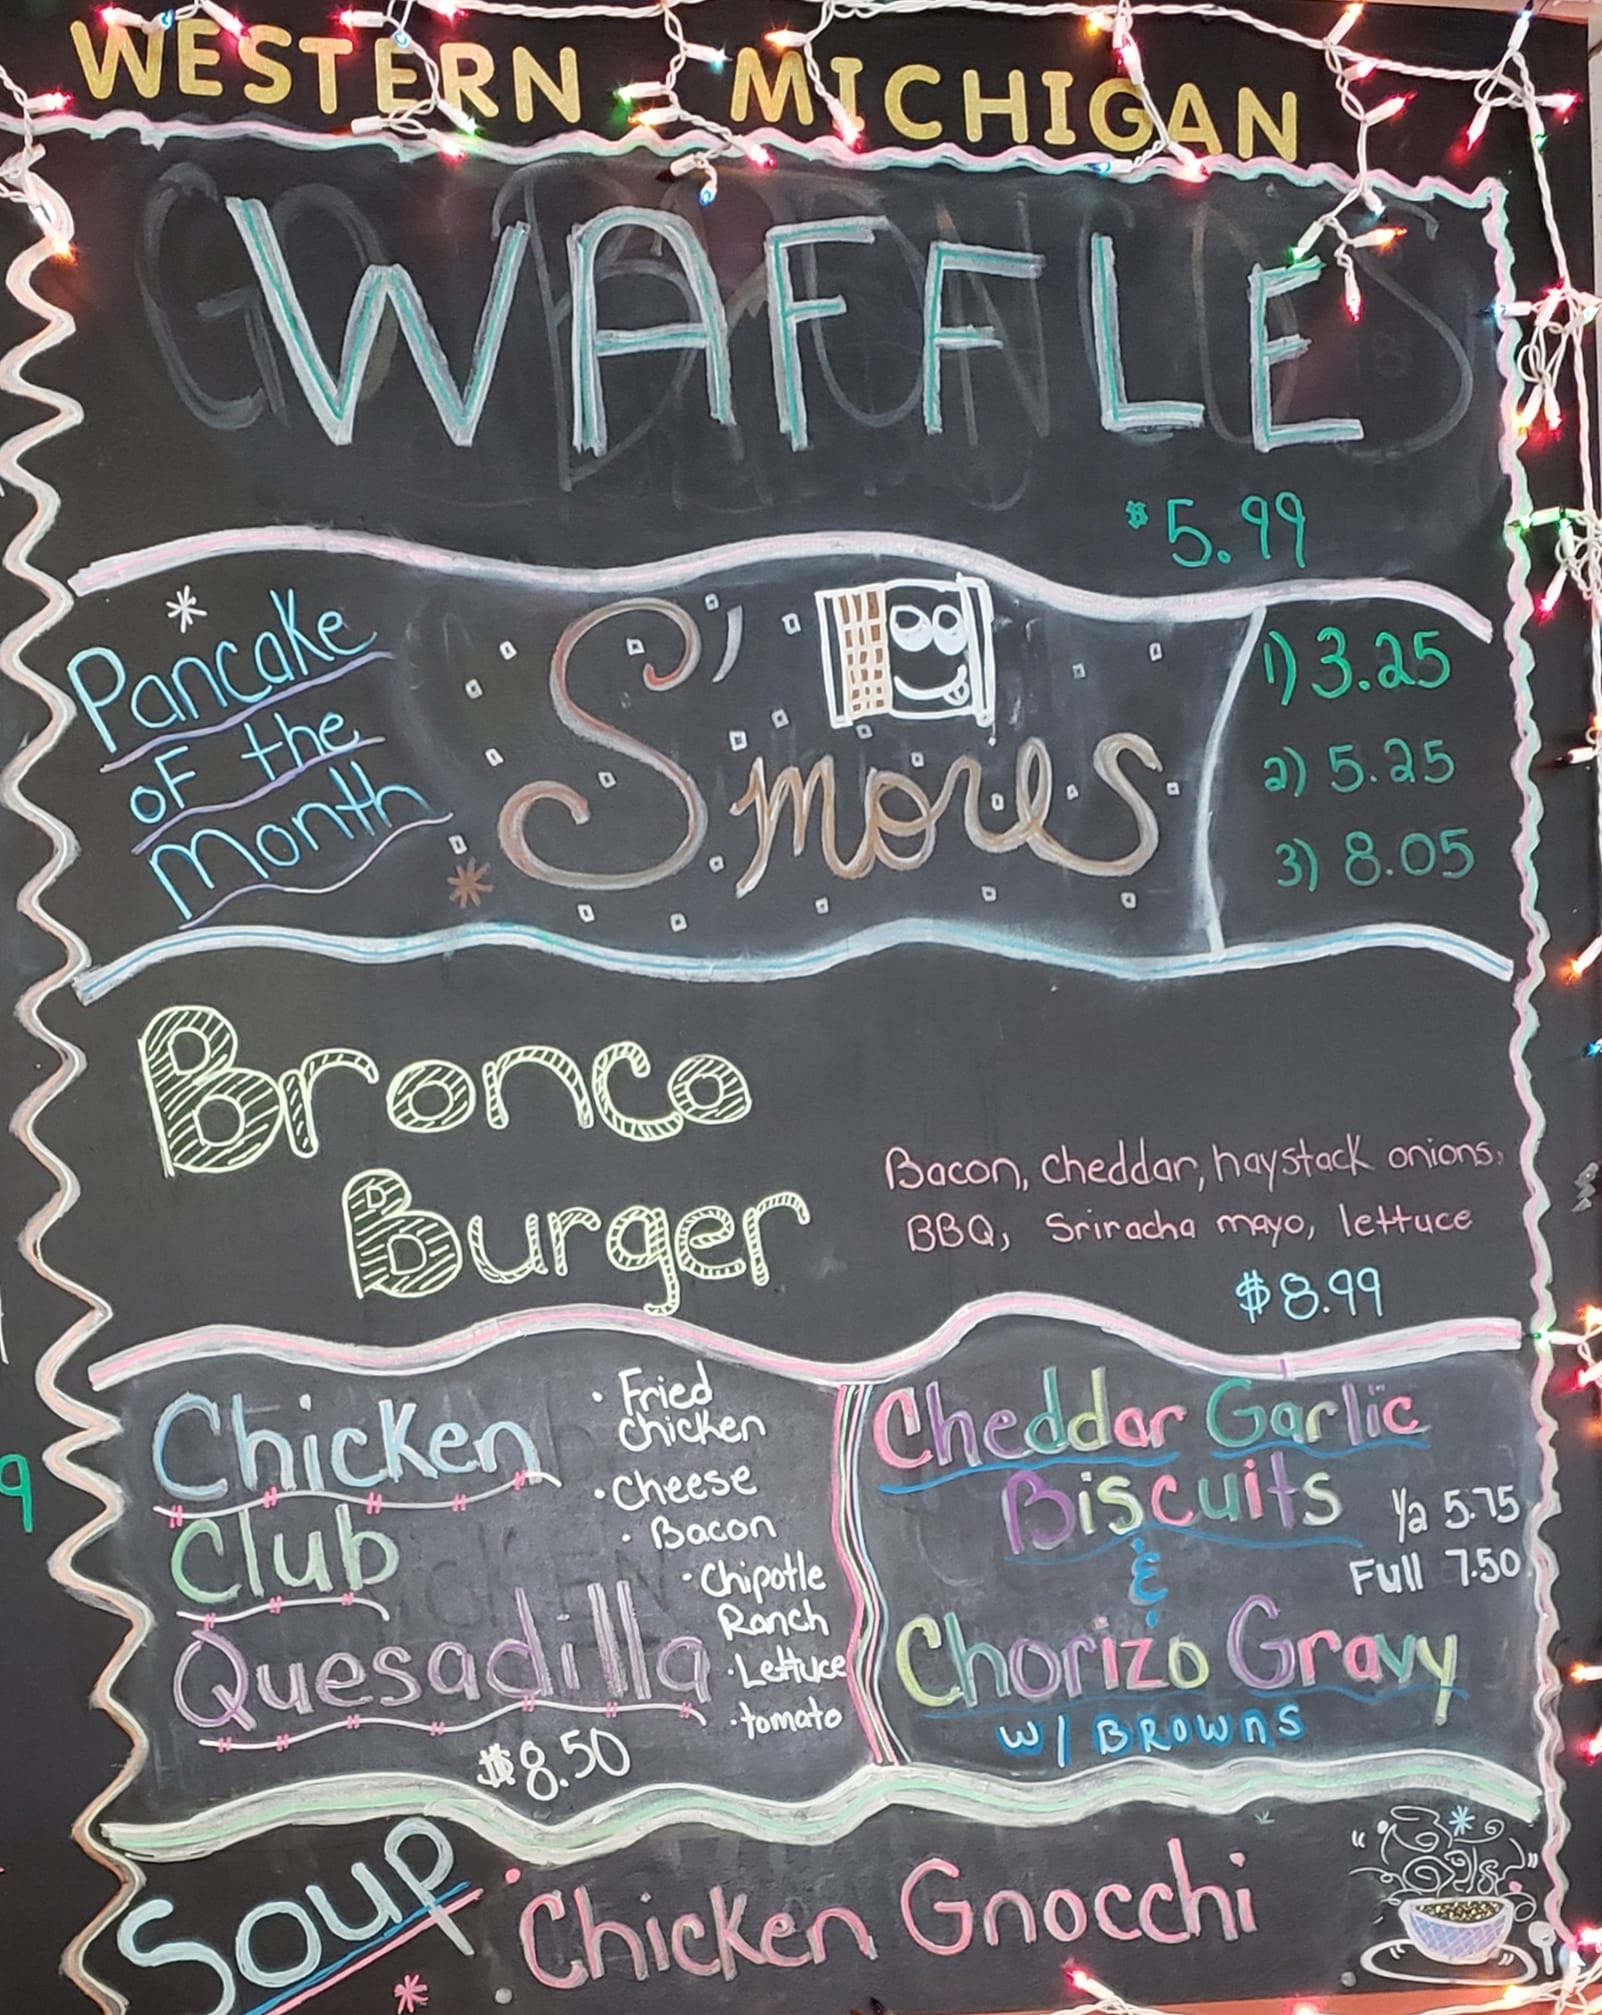 WESTERN MICHIGAN
WAFFLE
$5.99
Pancake
of the
Month
S'mores
1) 3.25
2) 5.25
3) 8.05
Bronco
Burger
Bacon, cheddar, haystack onions,
BBQ, Sriracha mayo, lettuce
$8.99
Chicken
Club
Quesadilla
$8.50
• Fried
chicken
• Cheese
• Bacon
• Chipotle
Ranch
• Lettuce
• tomato
Cheddar Garlic
Biscuits
&
Chorizo Gravy
w/ BROWNS
1/2 5.75
Full 7.50
Soup
Chicken Gnocchi
9